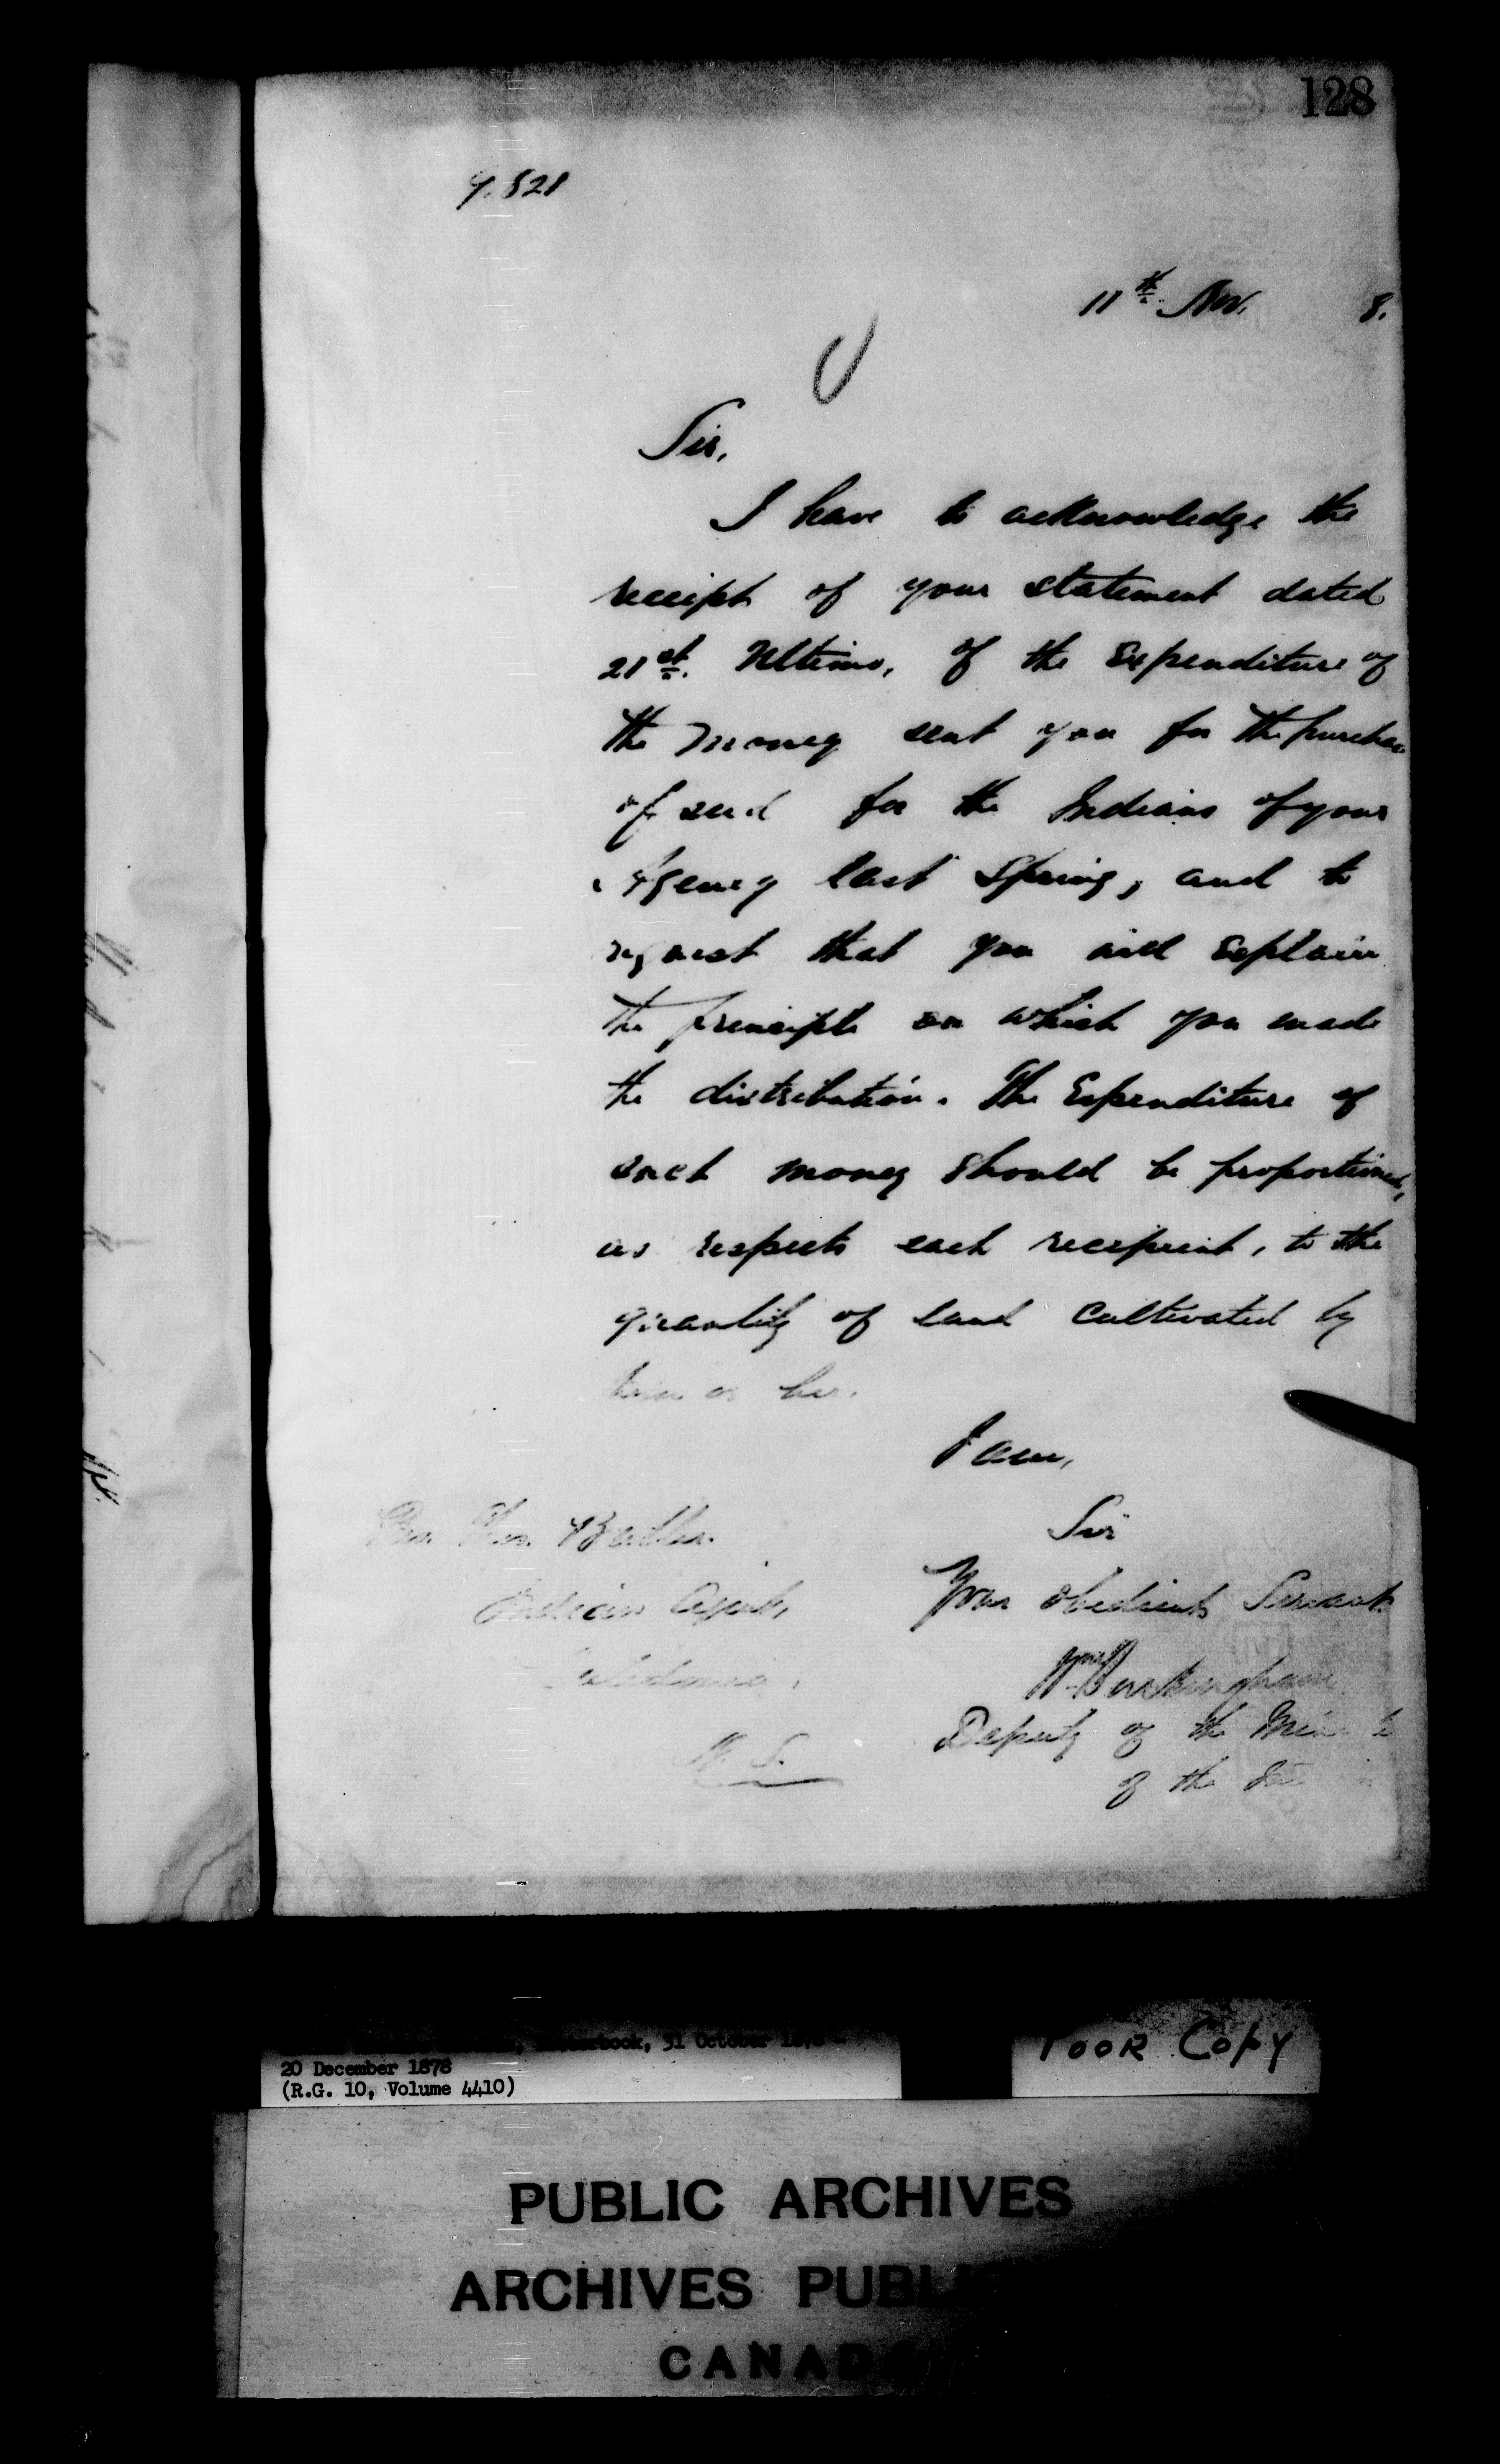 128
9.828
11th Nov. 8.
Sir,
I have to acknowledge the
receipt of your statement dated
21st. Ultimo, of the Expenditure of
the money sent you for the purchase
of seed for the Indians of your
Agency last Spring, and to
request that you will Explain
the principle on which you made
the distribution. The Expenditure of
such money should be proportioned,
as respects each recipient, to the
quantity of land cultivated by
him or her.
I am,
Sir
Your obedient Servant
Wm Buckingham
Deputy of the
of the
Indian Agent,
Caledonia,
N. S.
book, 31 October
20 December 1878
(R.G. 10, Volume 4410)
POOR COPY
PUBLIC ARCHIVES
ARCHIVES PUBLI
CANADA